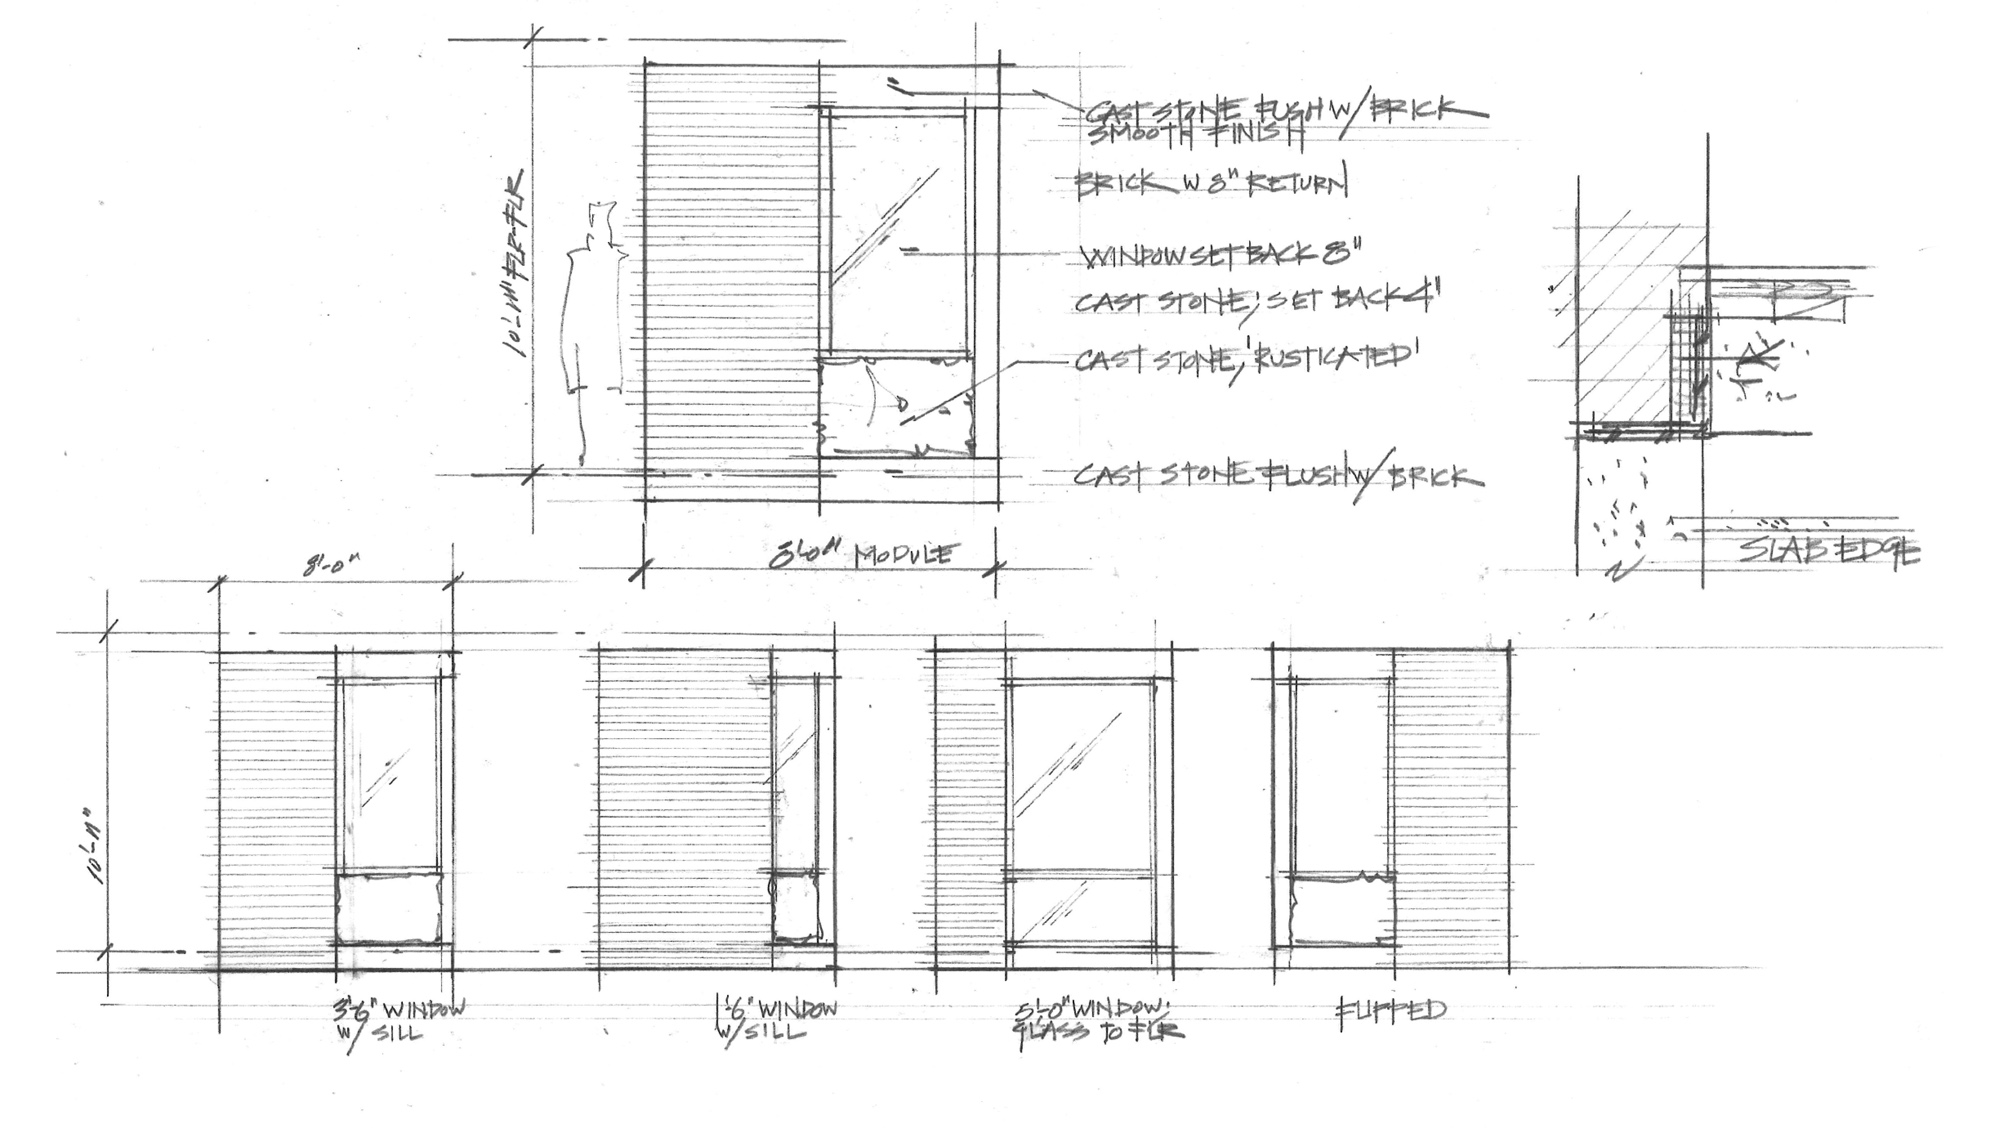 CAST STONE FUSH W/ BRICK
SMOOTH FINISH
BRICK W 8" RETURN
WINDOW SET BACK 8"
CAST STONE, SET BACK 4"
CAST STONE, 'RUSTICATED'
CAST STONE FLUSH W/ BRICK
10'-11" FLR-FLR
8'-0" MODULE
SLAB EDGE
8'-0"
10'-11"
3'-6" WINDOW
W/ SILL
1'-6" WINDOW
W/ SILL
5'-0" WINDOW,
GLASS TO FLR
FLIPPED